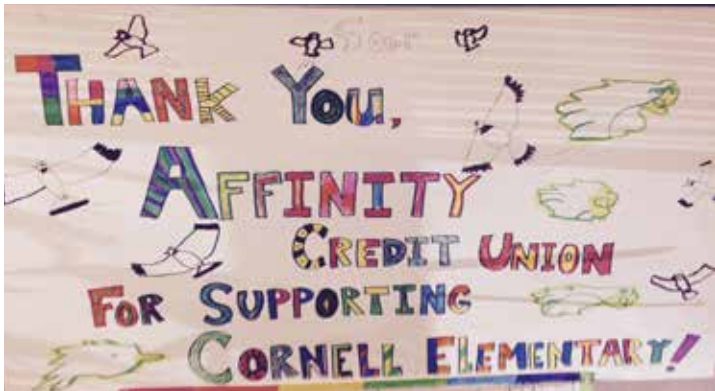 THANK YOU,
AFFINITY
CREDIT UNION
FOR SUPPORTING
CORNELL ELEMENTARY!